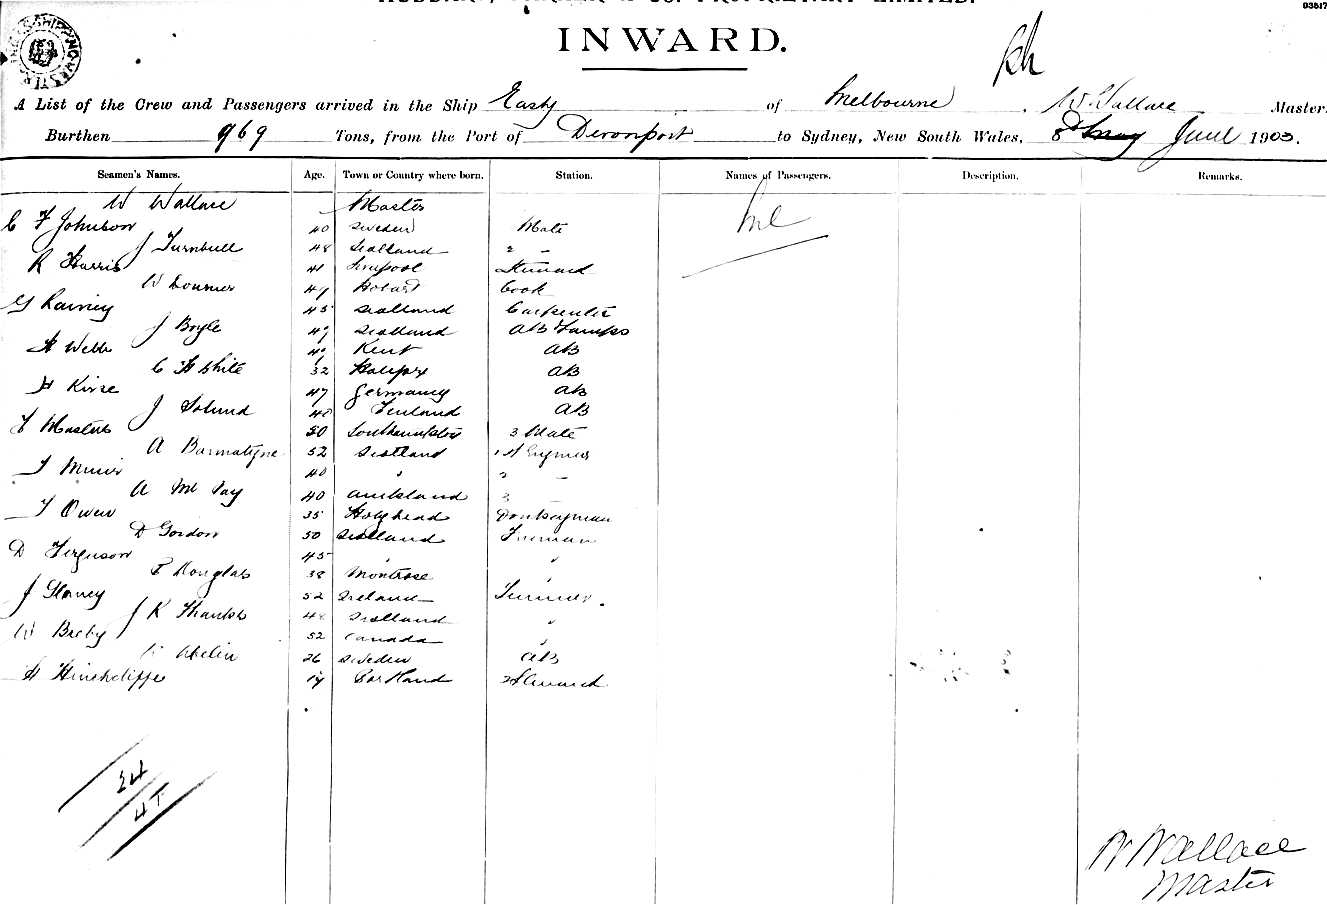 INWARD.
A List of the Crew and Passengers arrived in the Ship Easby of Melbourne, W. Wallace Master.
Burthen 969 Tons, from the Port of Devonport to Sydney, New South Wales, 8 June 1903.
Seamen's Names. Age. Town or Country where born. Station. Names of Passengers. Description. Remarks.
W Wallace Master
C F Johnson 40 Sweden Mate
J Turnbull 48 Scotland 2 "
R Harris 41 Liverpool Steward
W 47 Hobart Cook
G Rainey 45 Scotland Carpenter
J Boyle 49 Scotland AB Lamps
A Webb Kent AB
C H White 32 Halifax AB
H 47 Germany AB
J 48 Finland AB
F Masters 30 Southampton 3 Mate
A 52 Scotland 1st Engineer
J Muir 40 " 2 "
A Mc Fay 40 Auckland 3 "
T Owen 35 Holyhead Donkeyman
D Gordon 50 Scotland Fireman
D Ferguson 45 " "
P Douglas 38 Montrose "
J 52 Ireland Trimmer
J K 48 Scotland "
W 52 Canada "
Abelin 26 Sweden AB
A Hinchcliffe 17 2 Steward
nil
24
W Wallace
Master